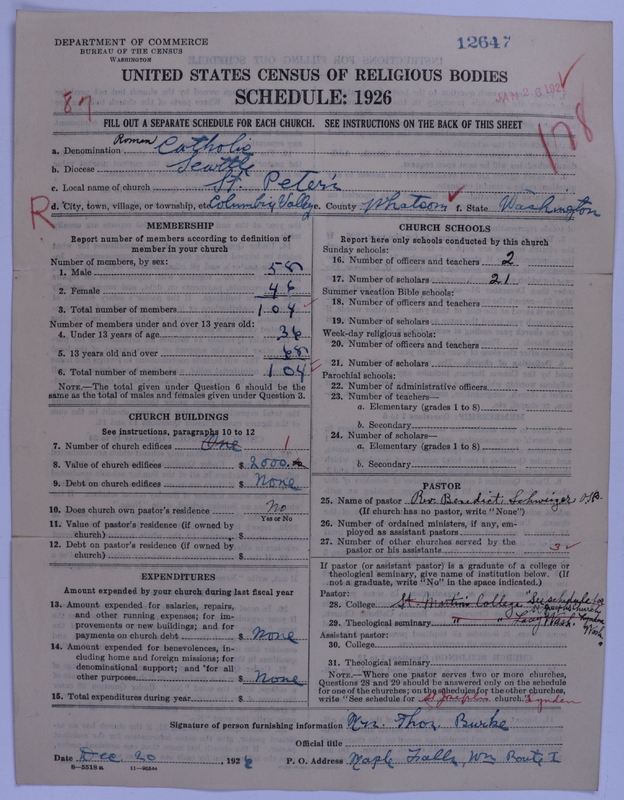 DEPARTMENT OF COMMERCE
BUREAU OF THE CENSUS
WASHINGTON
12647
UNITED STATES CENSUS OF RELIGIOUS BODIES
SCHEDULE: 1926
JAN 26 192
87
178
FILL OUT A SEPARATE SCHEDULE FOR EACH CHURCH. SEE INSTRUCTIONS ON THE BACK OF THIS SHEET
a. Denomination Roman Catholic
b. Diocese Seattle
c. Local name of church St. Peter's
R
d. City, town, village, or township, etc. Columbia Valley e. County Whatcom f. State Washington
MEMBERSHIP
Report number of members according to definition of
member in your church
Number of members, by sex:
1. Male 58
2. Female 46
3. Total number of members 104
Number of members under and over 13 years old:
4. Under 13 years of age 36
5. 13 years old and over 68
6. Total number of members 104
NOTE.—The total given under Question 6 should be the
same as the total of males and females given under Question 3.
CHURCH BUILDINGS
See instructions, paragraphs 10 to 12
7. Number of church edifices One 1
8. Value of church edifices $ 2000.
9. Debt on church edifices $ None
10. Does church own pastor's residence No
Yes or No
11. Value of pastor's residence (if owned by
church) $
12. Debt on pastor's residence (if owned by
church) $
EXPENDITURES
Amount expended by your church during last fiscal year
13. Amount expended for salaries, repairs,
and other running expenses; for im-
provements or new buildings; and for
payments on church debt $ None
14. Amount expended for benevolences, in-
cluding home and foreign missions; for
denominational support; and for all
other purposes $ None
15. Total expenditures during year $
CHURCH SCHOOLS
Report here only schools conducted by this church
Sunday schools:
16. Number of officers and teachers 2
17. Number of scholars 21
Summer vacation Bible schools:
18. Number of officers and teachers
19. Number of scholars
Week-day religious schools:
20. Number of officers and teachers
21. Number of scholars
Parochial schools:
22. Number of administrative officers
23. Number of teachers—
a. Elementary (grades 1 to 8)
b. Secondary
24. Number of scholars—
a. Elementary (grades 1 to 8)
b. Secondary
PASTOR
25. Name of pastor Rev. Benedict Schwinger
(If church has no pastor, write "None")
26. Number of ordained ministers, if any, em-
ployed as assistant pastors
27. Number of other churches served by the
pastor or his assistants 3
If pastor (or assistant pastor) is a graduate of a college or
theological seminary, give name of institution below. (If
not a graduate, write "No" in the space indicated.)
Pastor:
28. College St. Martins College "See schedule for
29. Theological seminary " " Lacy Wash.
Assistant pastor:
30. College
31. Theological seminary
NOTE.—Where one pastor serves two or more churches,
Questions 28 and 29 should be answered only on the schedule
for one of the churches; on the schedules for the other churches,
write "See schedule for St Joseph's church." Lynden
Signature of person furnishing information Mrs. Thos. Burke
Official title
Date Dec. 20, 1926 P. O. Address Maple Falls, Wn Route 1
8—5518a 11—9254